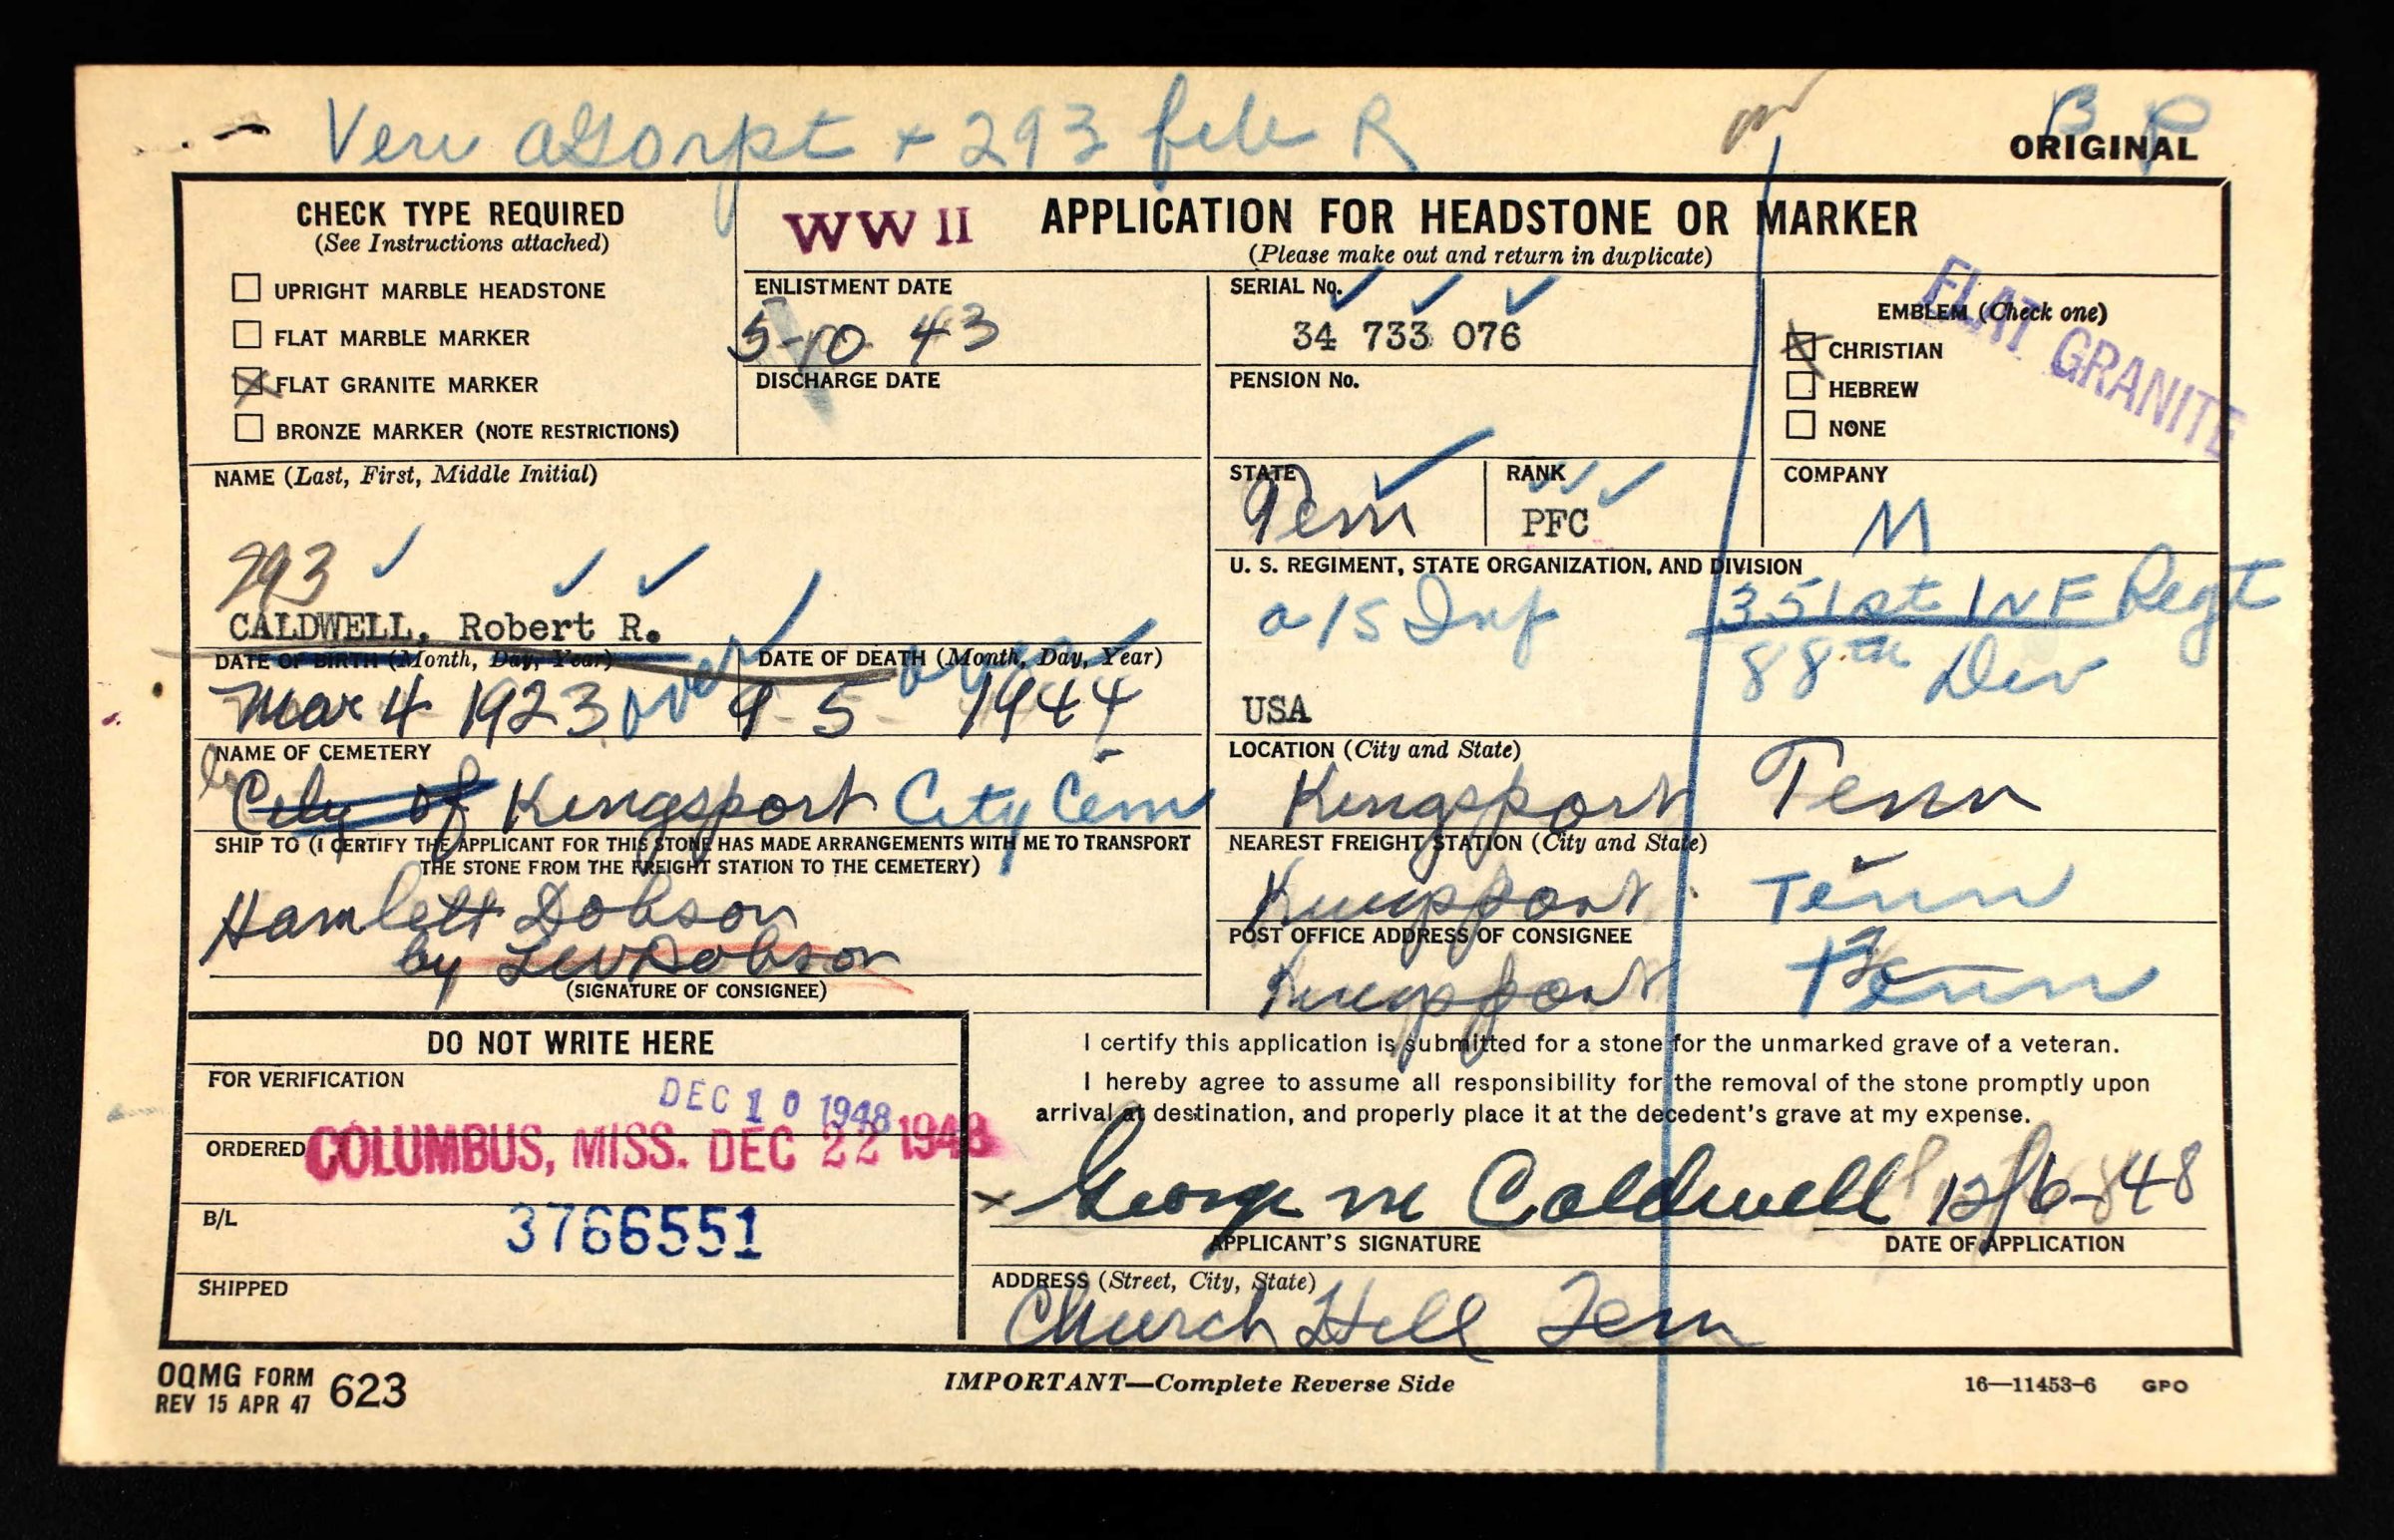 Veri + 293 file R
B P
ORIGINAL
CHECK TYPE REQUIRED
(See Instructions attached)
UPRIGHT MARBLE HEADSTONE
FLAT MARBLE MARKER
FLAT GRANITE MARKER
BRONZE MARKER (NOTE RESTRICTIONS)
WW II
APPLICATION FOR HEADSTONE OR MARKER
(Please make out and return in duplicate)
ENLISTMENT DATE
5-10 43
DISCHARGE DATE
SERIAL No.
34 733 076
PENSION No.
EMBLEM (Check one)
CHRISTIAN
HEBREW
NONE
FLAT GRANITE
NAME (Last, First, Middle Initial)
293
CALDWELL, Robert R.
STATE
Tenn
RANK
PFC
COMPANY
M
U. S. REGIMENT, STATE ORGANIZATION, AND DIVISION
a/s Inf
351st INF Regt
88th Div
USA
DATE OF BIRTH (Month, Day, Year)
Mar 4 1923
over
DATE OF DEATH (Month, Day, Year)
9-5-1944
NAME OF CEMETERY
City of Kingsport City Cem
LOCATION (City and State)
Kingsport Tenn
SHIP TO (I CERTIFY THE APPLICANT FOR THIS STONE HAS MADE ARRANGEMENTS WITH ME TO TRANSPORT
THE STONE FROM THE FREIGHT STATION TO THE CEMETERY)
Hamlett Dobson
by Dobson
(SIGNATURE OF CONSIGNEE)
NEAREST FREIGHT STATION (City and State)
Kingsport Tenn
POST OFFICE ADDRESS OF CONSIGNEE
Kingsport Tenn
DO NOT WRITE HERE
FOR VERIFICATION
DEC 10 1948
ORDERED
COLUMBUS, MISS. DEC 22 1948
B/L
3766551
SHIPPED
I certify this application is submitted for a stone for the unmarked grave of a veteran.
I hereby agree to assume all responsibility for the removal of the stone promptly upon
arrival at destination, and properly place it at the decedent's grave at my expense.
x George M Caldwell 12/6-48
APPLICANT'S SIGNATURE
DATE OF APPLICATION
ADDRESS (Street, City, State)
Church Hill Tenn
OQMG FORM 623
REV 15 APR 47
IMPORTANT—Complete Reverse Side
16—11453-6 GPO